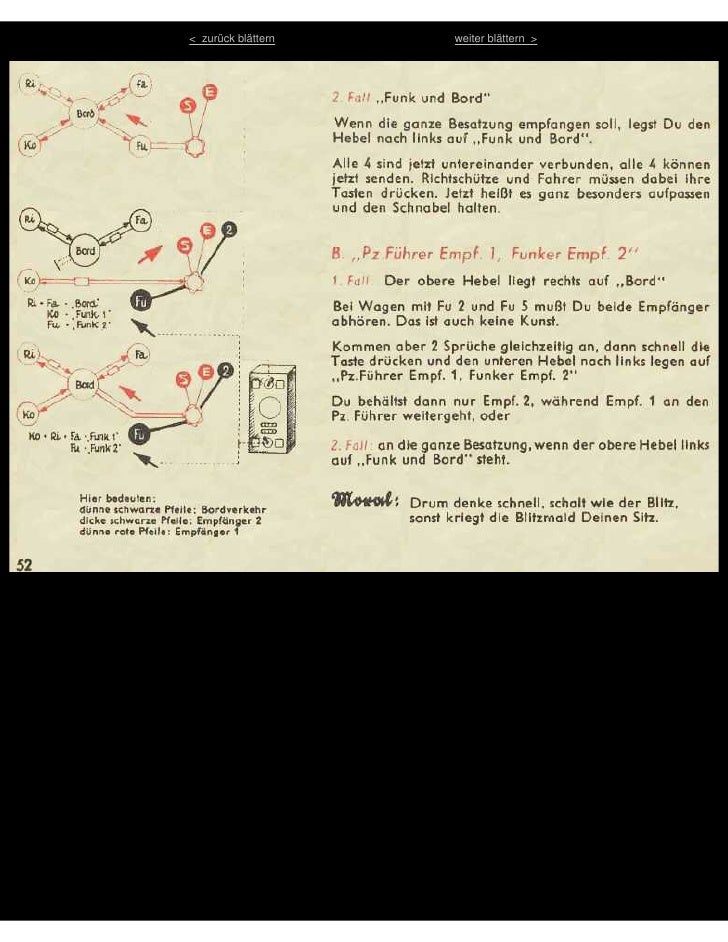 < zurück blättern
weiter blättern >
Ri
Fa
Bord
Ko
Fu
S
E
2. Fall „Funk und Bord"
Wenn die ganze Besatzung empfangen soll, legst Du den
Hebel nach links auf „Funk und Bord".
Alle 4 sind jetzt untereinander verbunden, alle 4 können
jetzt senden. Richtschütze und Fahrer müssen dabei ihre
Tasten drücken. Jetzt heißt es ganz besonders aufpassen
und den Schnabel halten.
Ri
Fa
Bord
Ko
Fu
S
E
2
Ri + Fa - „Bord"
Ko - „Funk 1"
Fu - „Funk 2"
B. „Pz.Führer Empf. 1, Funker Empf. 2"
1. Fall: Der obere Hebel liegt rechts auf „Bord"
Bei Wagen mit Fu 2 und Fu 5 mußt Du beide Empfänger
abhören. Das ist auch keine Kunst.
Kommen aber 2 Sprüche gleichzeitig an, dann schnell die
Taste drücken und den unteren Hebel nach links legen auf
„Pz.Führer Empf. 1, Funker Empf. 2"
Du behältst dann nur Empf. 2, während Empf. 1 an den
Pz. Führer weitergeht, oder
2. Fall: an die ganze Besatzung, wenn der obere Hebel links
auf „Funk und Bord" steht.
Ri
Fa
Bord
Ko
Fu
S
E
2
Ko + Ri + Fa - „Funk 1"
Fu - „Funk 2"
Hier bedeuten:
dünne schwarze Pfeile: Bordverkehr
dicke schwarze Pfeile: Empfänger 2
dünne rote Pfeile: Empfänger 1
Moral: Drum denke schnell, schalt wie der Blitz,
sonst kriegt die Blitzmaid Deinen Sitz.
52